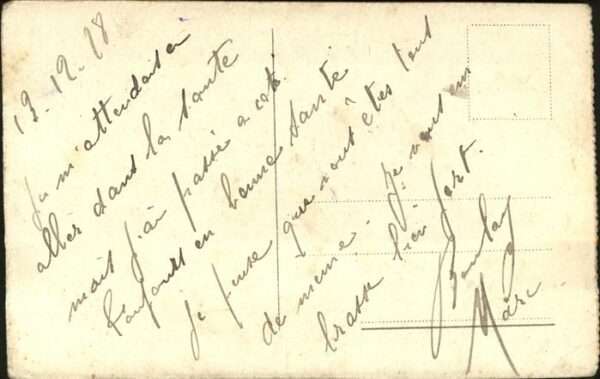 19-12-18
Je m'attendais à
aller dans la
mais j'ai passé a coté.
Toujours en bonne santé
je pense que vous êtes tous
de meme. je vous em
brasse bien fort.
Marc